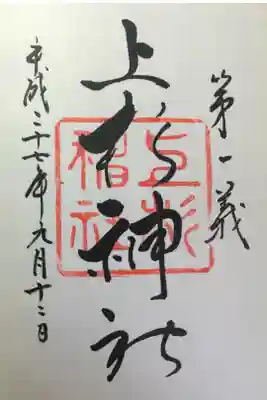 第一義
上杉神社
平成二十七年九月十二日